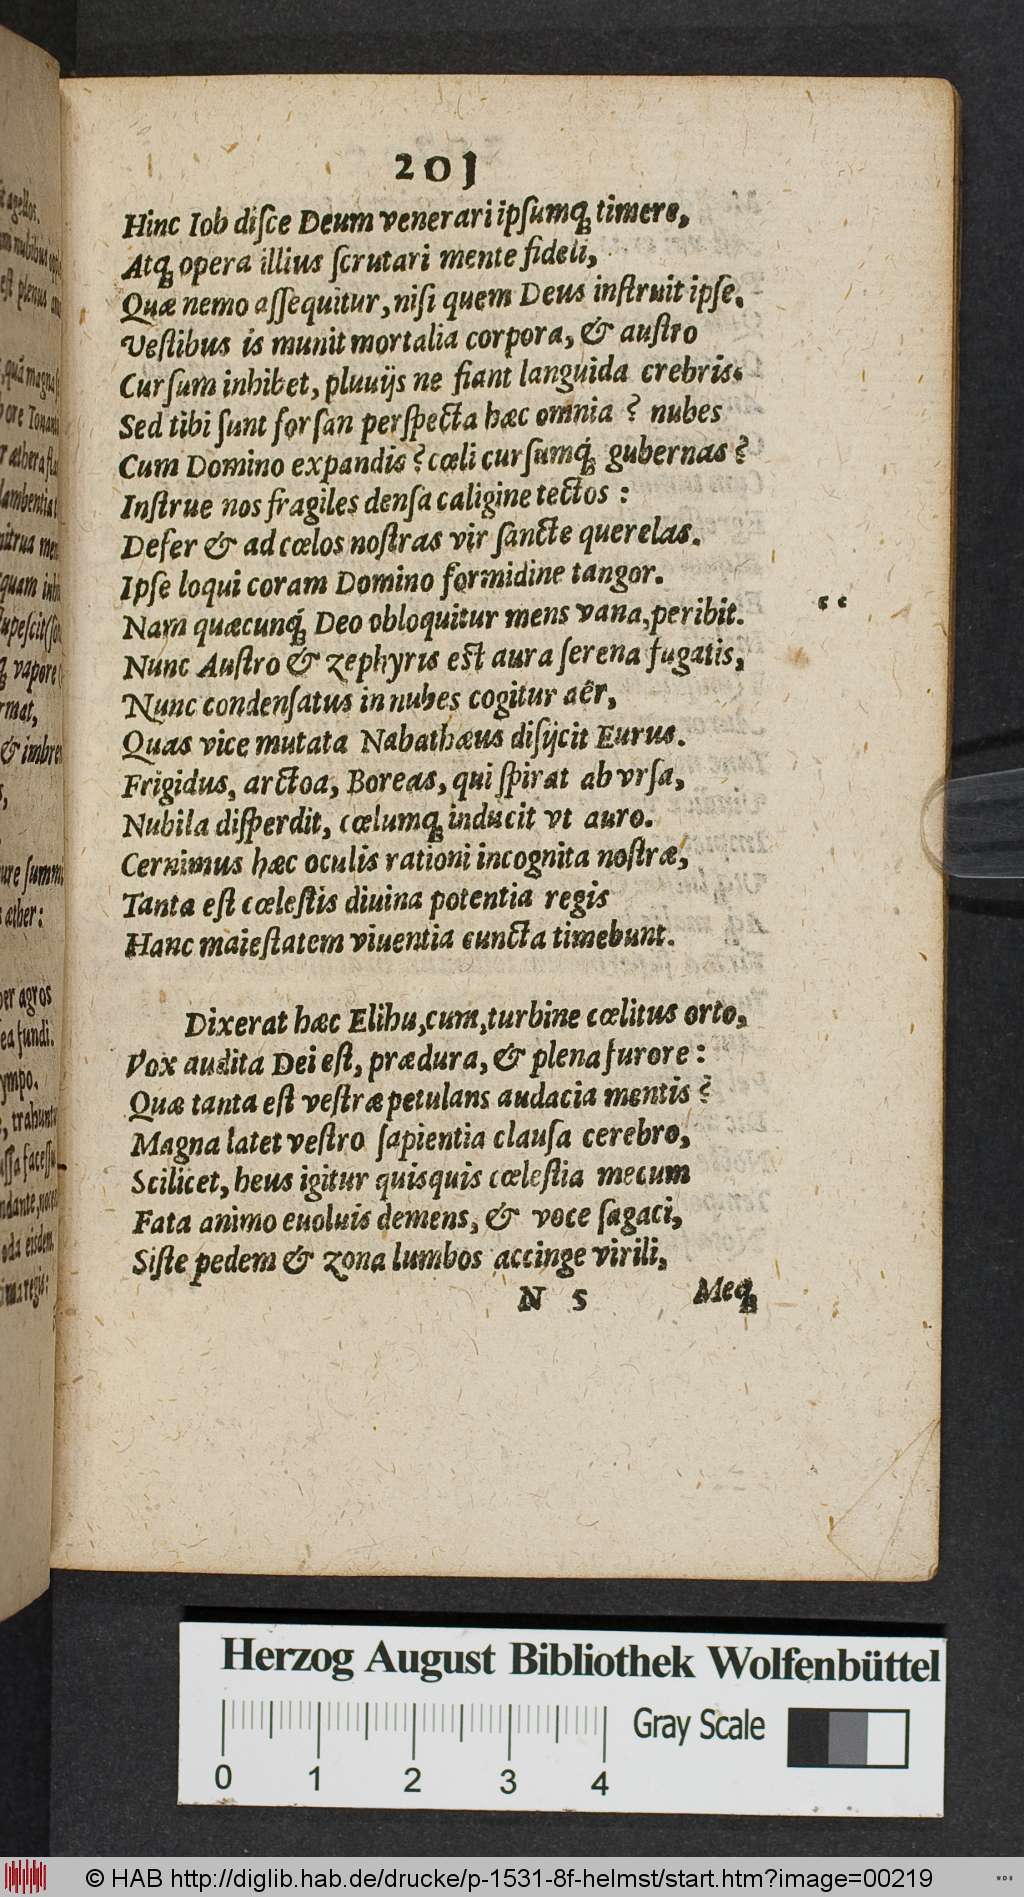 201
Hinc Iob diſce Deum venerari ipſumq́ꝫ timere,
Atqꝫ opera illius ſcrutari mente fideli,
Quæ nemo aſſequitur, niſi quem Deus inſtruit ipſe.
Veſtibus is munit mortalia corpora, & auſtro
Curſum inhibet, pluuijs ne fiant languida crebris.
Sed tibi ſunt forſan perſpecta hæc omnia ? nubes
Cum Domino expandis ? cœli curſumq́ꝫ gubernas ?
Inſtrue nos fragiles denſa caligine tectos :
Defer & ad cœlos noſtras vir ſancte querelas.
Ipſe loqui coram Domino formidine tangor.
Nam quæcunq́ꝫ Deo obloquitur mens vana, peribit. “
Nunc Auſtro & zephyris eſt aura ſerena fugatis,
Nunc condenſatus in nubes cogitur aër,
Quas vice mutata Nabathæus diſijcit Eurus.
Frigidus, arctoa, Boreas, qui ſpirat ab vrſa,
Nubila diſperdit, cœlumqꝫ inducit vt auro.
Cernimus hæc oculis rationi incognita noſtræ,
Tanta eſt cœleſtis diuina potentia regis
Hanc maieſtatem viuentia cuncta timebunt.
Dixerat hæc Elihu, cum, turbine cœlitus orto,
Vox audita Dei eſt, prædura, & plena furore :
Quæ tanta eſt veſtræ petulans audacia mentis ?
Magna latet veſtro ſapientia clauſa cerebro,
Scilicet, heus igitur quisquis cœleſtia mecum
Fata animo euoluis demens, & voce ſagaci,
Siſte pedem & zona lumbos accinge virili,
N 5 Meqꝫ
Herzog August Bibliothek Wolfenbüttel
Gray Scale
0 1 2 3 4
© HAB http://diglib.hab.de/drucke/p-1531-8f-helmst/start.htm?image=00219